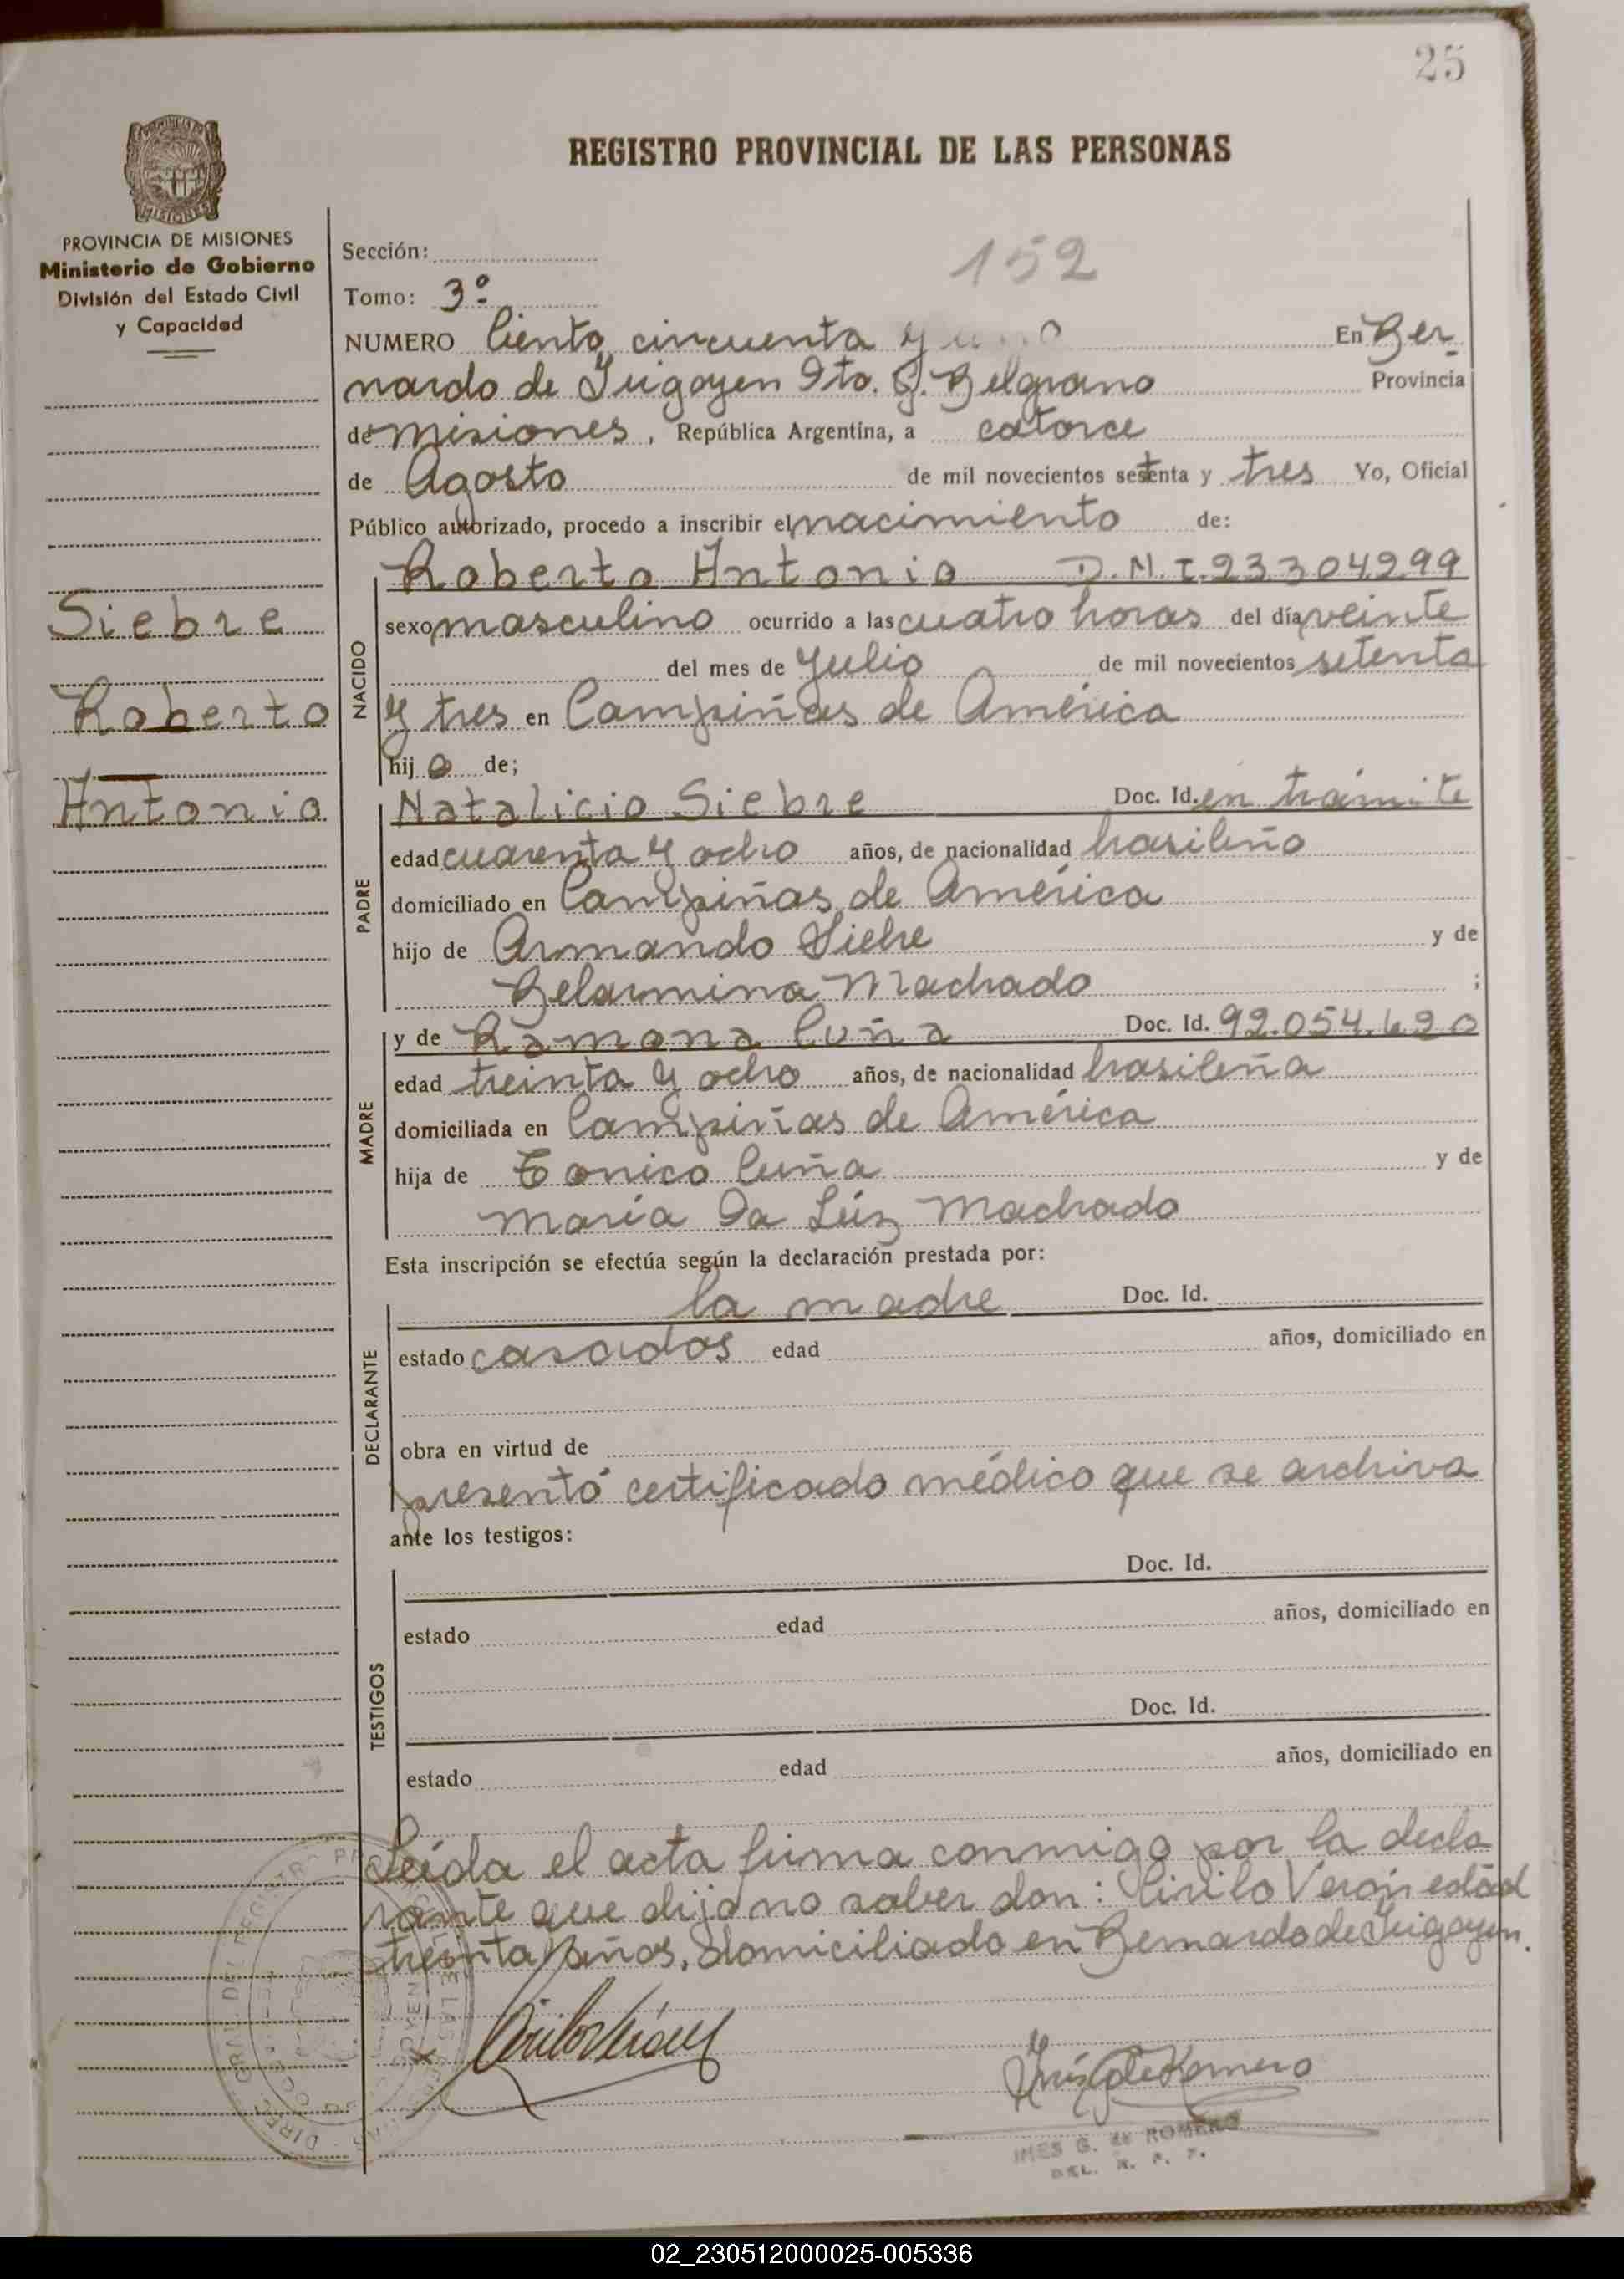 25
REGISTRO PROVINCIAL DE LAS PERSONAS
PROVINCIA DE MISIONES
Ministerio de Gobierno
División del Estado Civil
y Capacidad
Siebre
Roberto
Antonio
152
Sección:
Tomo: 3º
NUMERO Ciento cincuenta y En Ber-
nardo de Irigoyen Dto. G. Belgrano Provincia
de Misiones, República Argentina, a catorce
de Agosto de mil novecientos setenta y tres Yo, Oficial
Público autorizado, procedo a inscribir el nacimiento de:
NACIDO
Roberto Antonio D.N.I. 23304299
sexo masculino ocurrido a las cuatro horas del día veinte
del mes de Julio de mil novecientos setenta
y tres en Campiñas de América
hijo de;
PADRE
Natalicio Siebre Doc. Id. en trámite
edad cuarenta y ocho años, de nacionalidad brasileño
domiciliado en Campiñas de América
hijo de Armando Siebre y de
Belarmina Machado ;
MADRE
y de Ramona Cuña Doc. Id. 92.054.620
edad treinta y ocho años, de nacionalidad brasileña
domiciliada en Campiñas de América
hija de Tonico Cuña y de
María Da Lúz Machado
Esta inscripción se efectúa según la declaración prestada por:
DECLARANTE
la madre Doc. Id.
estado casados edad años, domiciliado en
obra en virtud de
presentó certificado médico que se archiva
ante los testigos:
TESTIGOS
Doc. Id.
estado edad años, domiciliado en
Doc. Id.
estado edad años, domiciliado en
Leída el acta firma conmigo por la decla
rante que dijo no saber don: Cirilo Verón edad
treinta años, domiciliado en Bernardo de Irigoyen.
x Cirilo Verón
Inés G de Romero
INES G. de ROMERO
DEL. R. P. P.
02_230512000025-005336